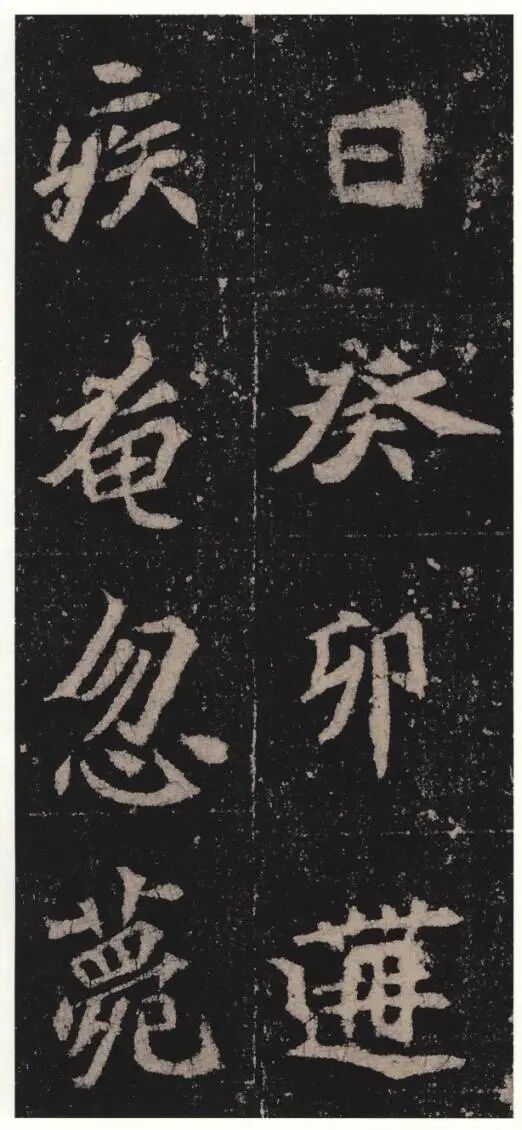 日癸卯遘
疾奄忽薨